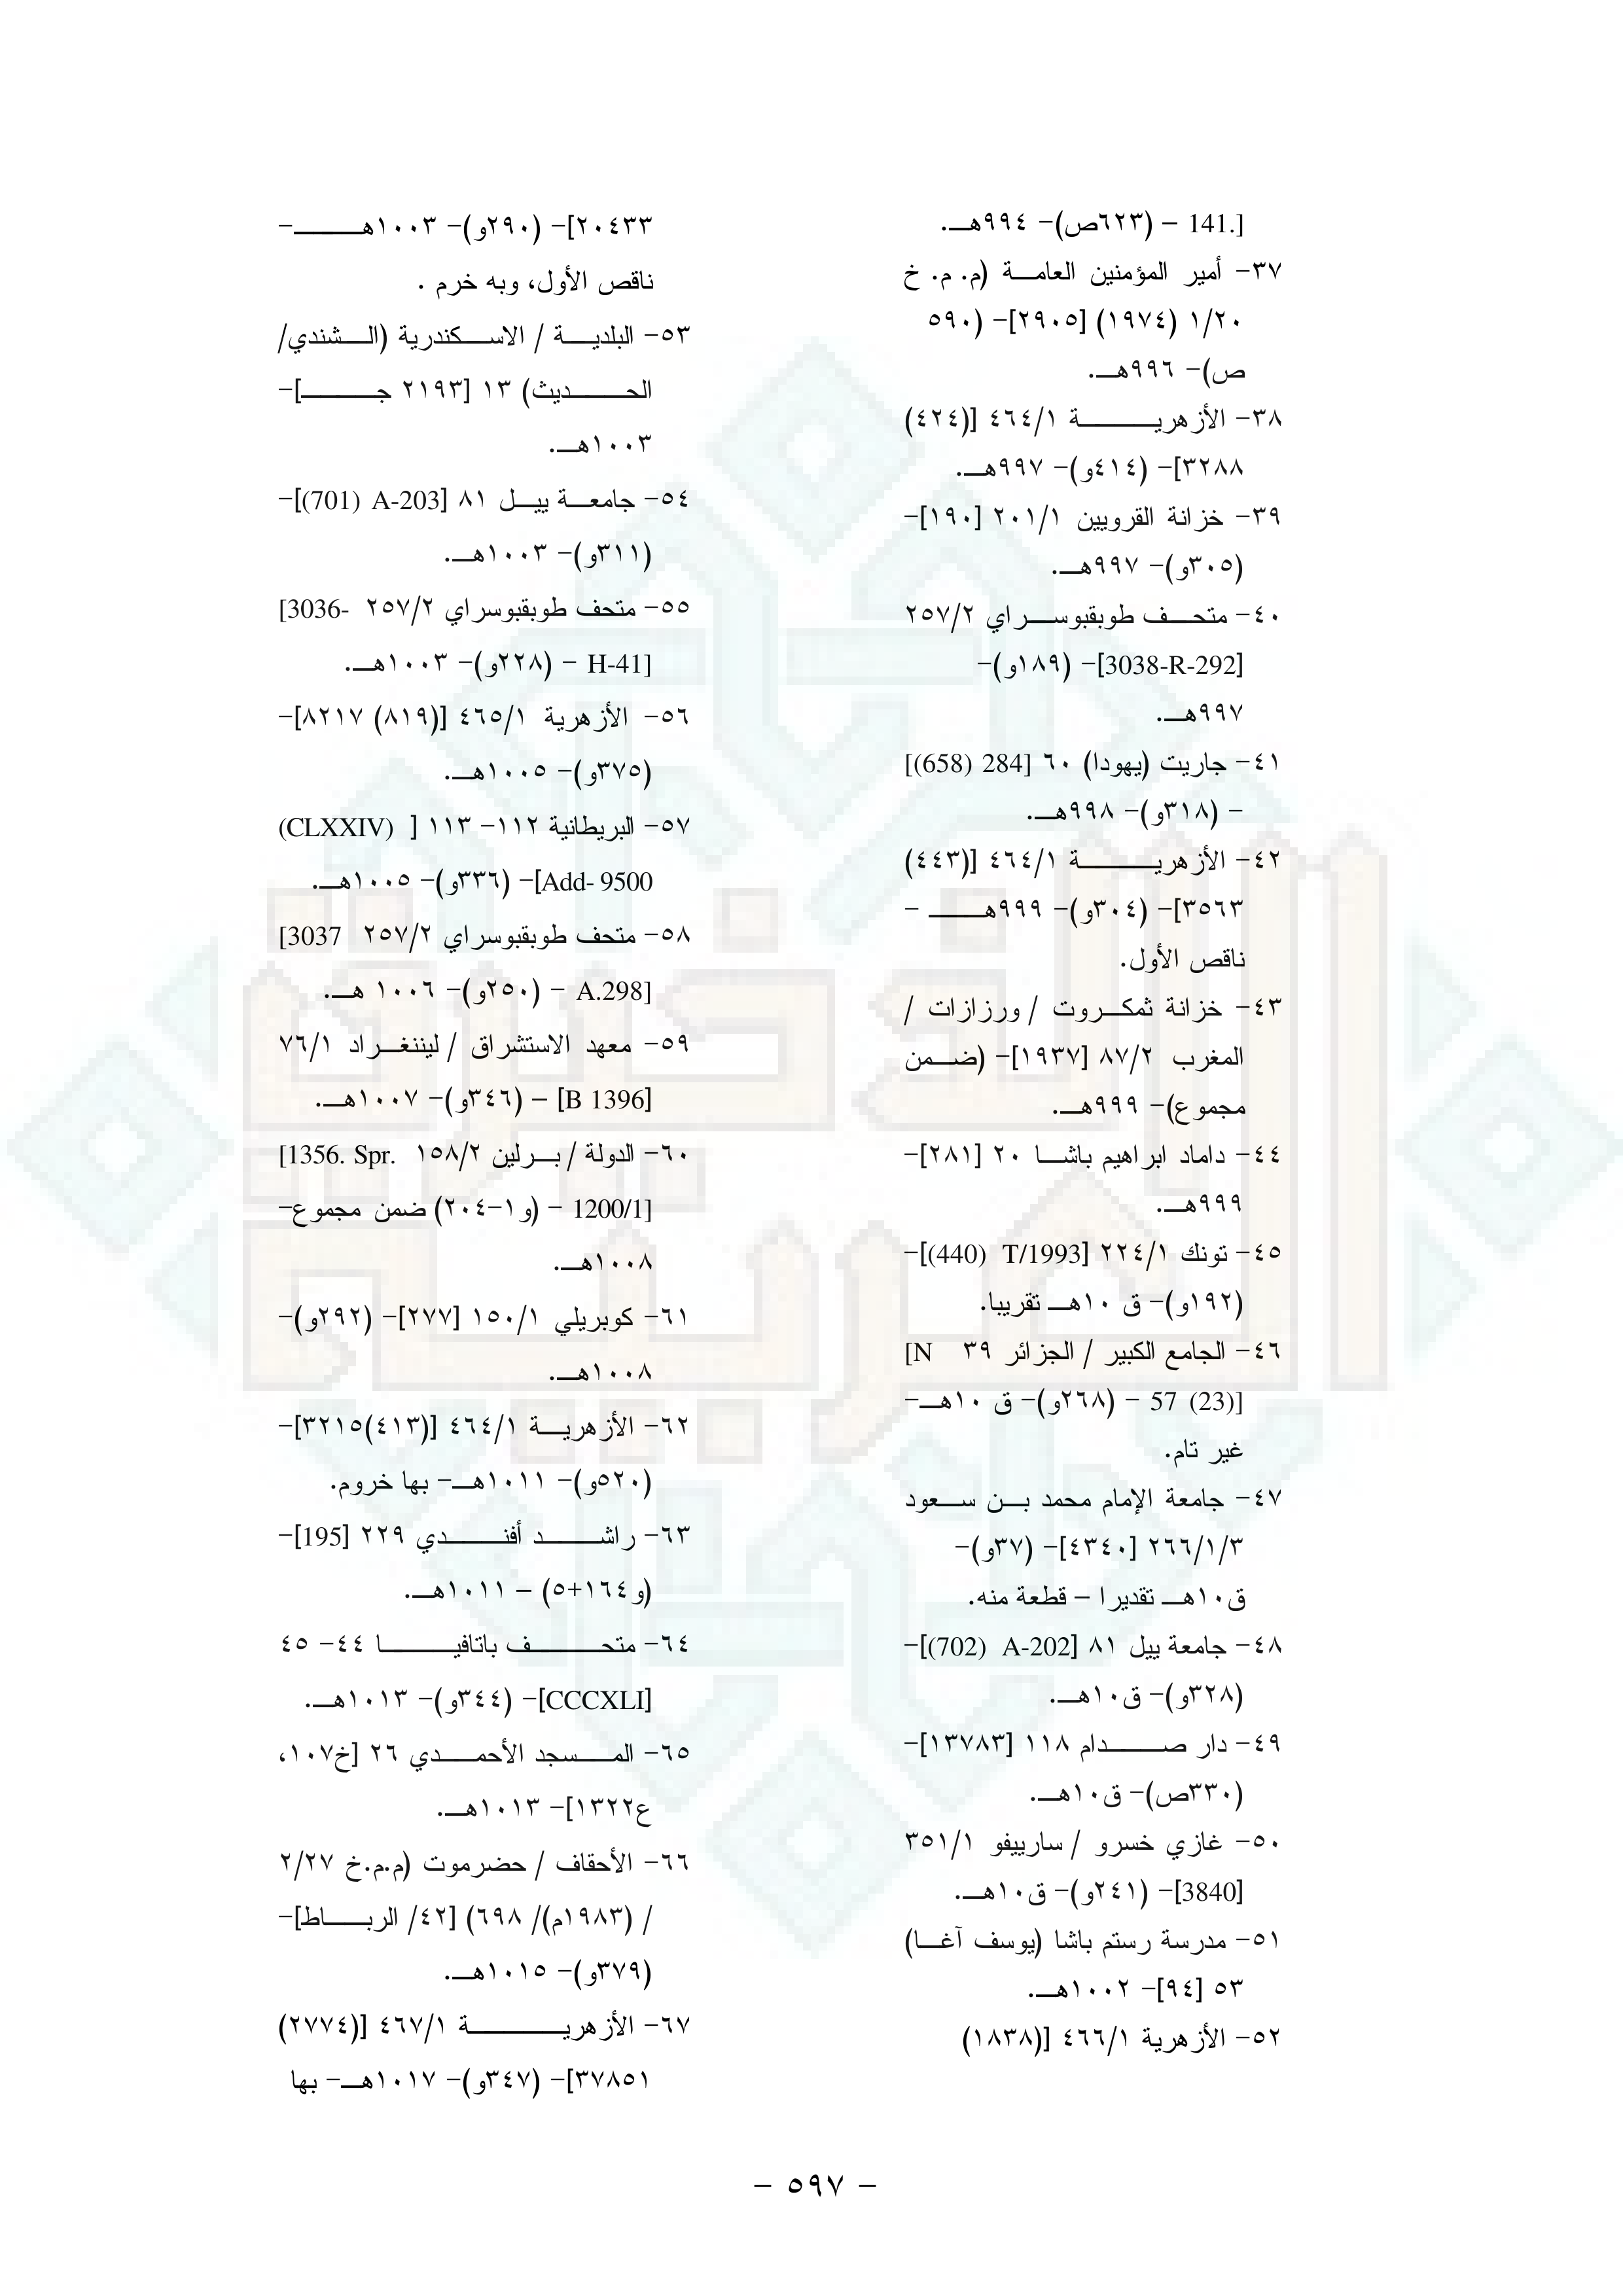 141.] – (٦٢٣ص)– ٩٩٤هـ.
٣٧– أمير المؤمنين العامة (م. م. خ
١/٢٠ (١٩٧٤) [٢٩٠٥]– (٥٩٠
ص)– ٩٩٦هـ.
٣٨– الأزهرية ٤٦٤/١ [(٤٢٤)
٣٢٨٨]– (٤١٤و)– ٩٩٧هـ.
٣٩– خزانة القرويين ٢٠١/١ [١٩٠]–
(٣٠٥و)– ٩٩٧هـ.
٤٠– متحف طوبقبوسراي ٢٥٧/٢
[3038-R-292]– (١٨٩و)–
٩٩٧هـ.
٤١– جاريت (يهودا) ٦٠ [284 (658)]
– (٣١٨و)– ٩٩٨هـ.
٤٢– الأزهرية ٤٦٤/١ [(٤٤٣)
٣٥٦٣]– (٣٠٤و)– ٩٩٩هـ –
ناقص الأول.
٤٣– خزانة ثمكروت / ورزازات /
المغرب ٨٧/٢ [١٩٣٧]– (ضمن
مجموع)– ٩٩٩هـ.
٤٤– داماد ابراهيم باشا ٢٠ [٢٨١]–
٩٩٩هـ.
٤٥– تونك ٢٢٤/١ [T/1993 (440)]–
(١٩٢و)– ق ١٠هـ تقريبا.
٤٦– الجامع الكبير / الجزائر ٣٩ [N
57 (23)] – (٢٦٨و)– ق ١٠هـ–
غير تام.
٤٧– جامعة الإمام محمد بن سعود
٢٦٦/١/٣ [٤٣٤٠]– (٣٧و)–
ق١٠هـ تقديرا – قطعة منه.
٤٨– جامعة ييل ٨١ [A-202 (702)]–
(٣٢٨و)– ق١٠هـ.
٤٩– دار صدام ١١٨ [١٣٧٨٣]–
(٣٣٠ص)– ق١٠هـ.
٥٠– غازي خسرو / سارييفو ٣٥١/١
[3840]– (٢٤١و)– ق١٠هـ.
٥١– مدرسة رستم باشا (يوسف آغا)
٥٣ [٩٤]– ١٠٠٢هـ.
٥٢– الأزهرية ٤٦٦/١ [(١٨٣٨)
٢٠٤٣٣]– (٢٩٠و)– ١٠٠٣هـ–
ناقص الأول، وبه خرم .
٥٣– البلدية / الاسكندرية (الشندي/
الحديث) ١٣ [٢١٩٣ جـ]–
١٠٠٣هـ.
٥٤– جامعة ييل ٨١ [A-203 (701)]–
(٣١١و)– ١٠٠٣هـ.
٥٥– متحف طوبقبوسراي ٢٥٧/٢ [3036-
H-41] – (٢٢٨و)– ١٠٠٣هـ.
٥٦– الأزهرية ٤٦٥/١ [(٨١٩) ٨٢١٧]–
(٣٧٥و)– ١٠٠٥هـ.
٥٧– البريطانية ١١٢– ١١٣ [ (CLXXIV)
Add- 9500]– (٣٣٦و)– ١٠٠٥هـ.
٥٨– متحف طوبقبوسراي ٢٥٧/٢ [3037
A.298] – (٢٥٠و)– ١٠٠٦ هـ.
٥٩– معهد الاستشراق / ليننغراد ٧٦/١
[B 1396] – (٣٤٦و)– ١٠٠٧هـ.
٦٠– الدولة / برلين ١٥٨/٢ [1356. Spr.
1200/1] – (و١–٢٠٤) ضمن مجموع–
١٠٠٨هـ.
٦١– كوبريلي ١٥٠/١ [٢٧٧]– (٢٩٢و)–
١٠٠٨هـ.
٦٢– الأزهرية ٤٦٤/١ [(٤١٣)٣٢١٥]–
(٥٢٠و)– ١٠١١هـ– بها خروم.
٦٣– راشد أفندي ٢٢٩ [195]–
(و١٦٤+٥) – ١٠١١هـ.
٦٤– متحف باتافيا ٤٤– ٤٥
[CCCXLI]– (٣٤٤و)– ١٠١٣هـ.
٦٥– المسجد الأحمدي ٢٦ [خ١٠٧،
ع١٣٢٢]– ١٠١٣هـ.
٦٦– الأحقاف / حضرموت (م.م.خ ٢/٢٧
/ (١٩٨٣م)/ ٦٩٨) [٤٢/ الرباط]–
(٣٧٩و)– ١٠١٥هـ.
٦٧– الأزهرية ٤٦٧/١ [(٢٧٧٤)
٣٧٨٥١]– (٣٤٧و)– ١٠١٧هـ– بها
– ٥٩٧ –